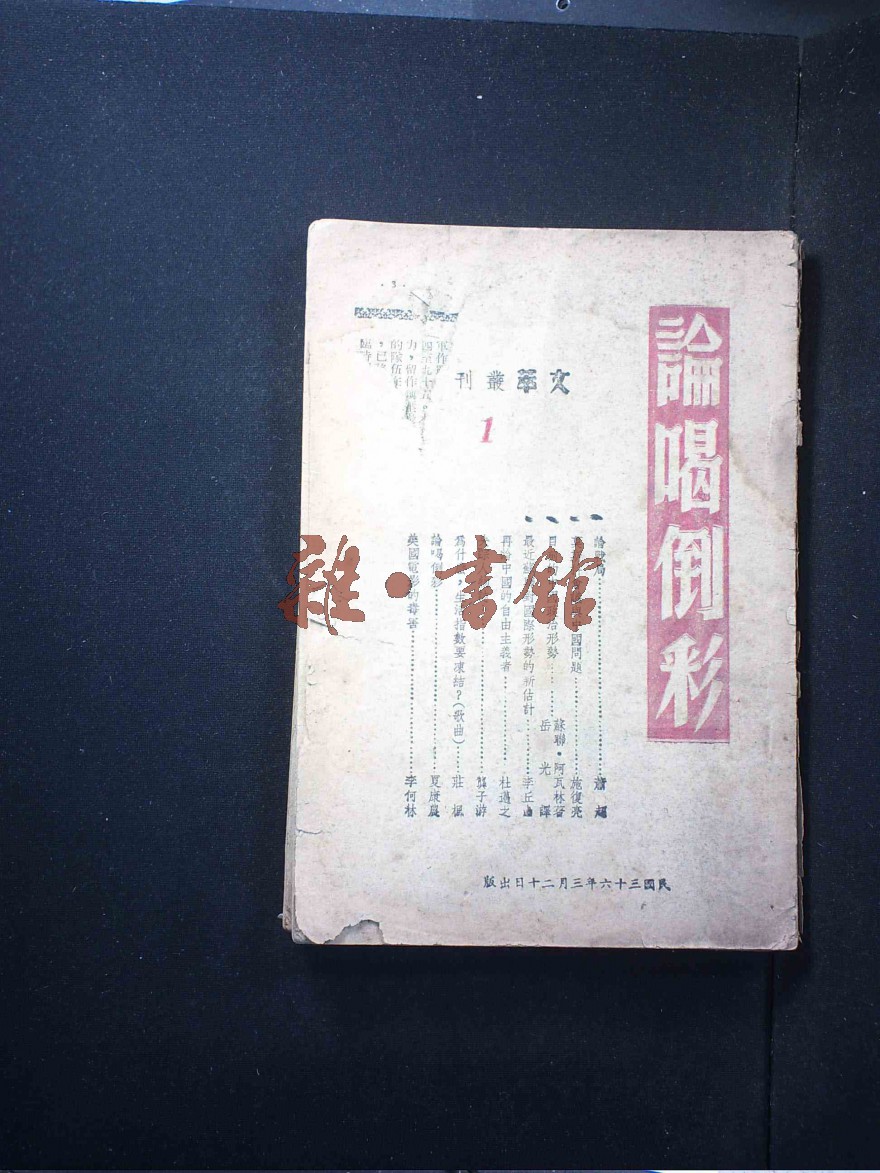 論喝倒彩
文萃叢刊
1
論
蕭超
國問題
施復亮
形勢
蘇聯·阿瓦林著
岳光譯
最近
國際形勢的新估計
李丘
再論中國的自由主義者
杜邁之
子游
為什
生活指數要凍結？（歌曲）
莊楓
論喝倒彩
夏康農
美國電影的毒害
李何林
民國三十六年三月二十日出版
·3·
四至九十五
力，留作
的隊伍
雜·書館